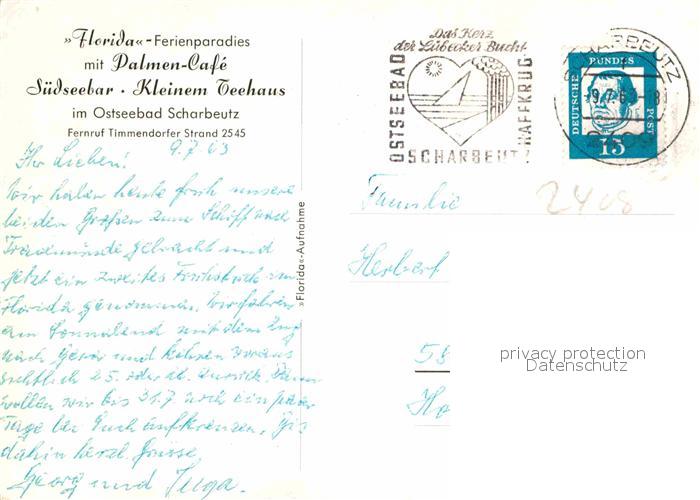 »Florida«-Ferienparadies
mit Palmen-Café
Südseebar · Kleinem Teehaus
im Ostseebad Scharbeutz
Fernruf Timmendorfer Strand 2545
9.7.63
Ihr Lieben!
Wir haben heute früh unsere
beiden Großen zum Schiff nach
Travemünde gebracht und
jetzt ein zweites Frühstück im
Florida genommen. Wir fahren
am Sonnabend mit dem Zug
nach und kehren voraus
sichtlich 25. oder 26. zurück. Dann
wollen wir bis 31.7 noch ein paar
Tage bei Euch aufkreuzen. Bis
dahin herzl. Grüsse,
Georg und Inga.
»Florida«-Aufnahme
Das Herz
der Lübecker Bucht
OSTSEEBAD
HAFFKRUG
SCHARBEUTZ
SCHARBEUTZ
DEUTSCHE
BUNDES
POST
15
2408
Familie
Herbert
58
Ho
privacy protection
Datenschutz